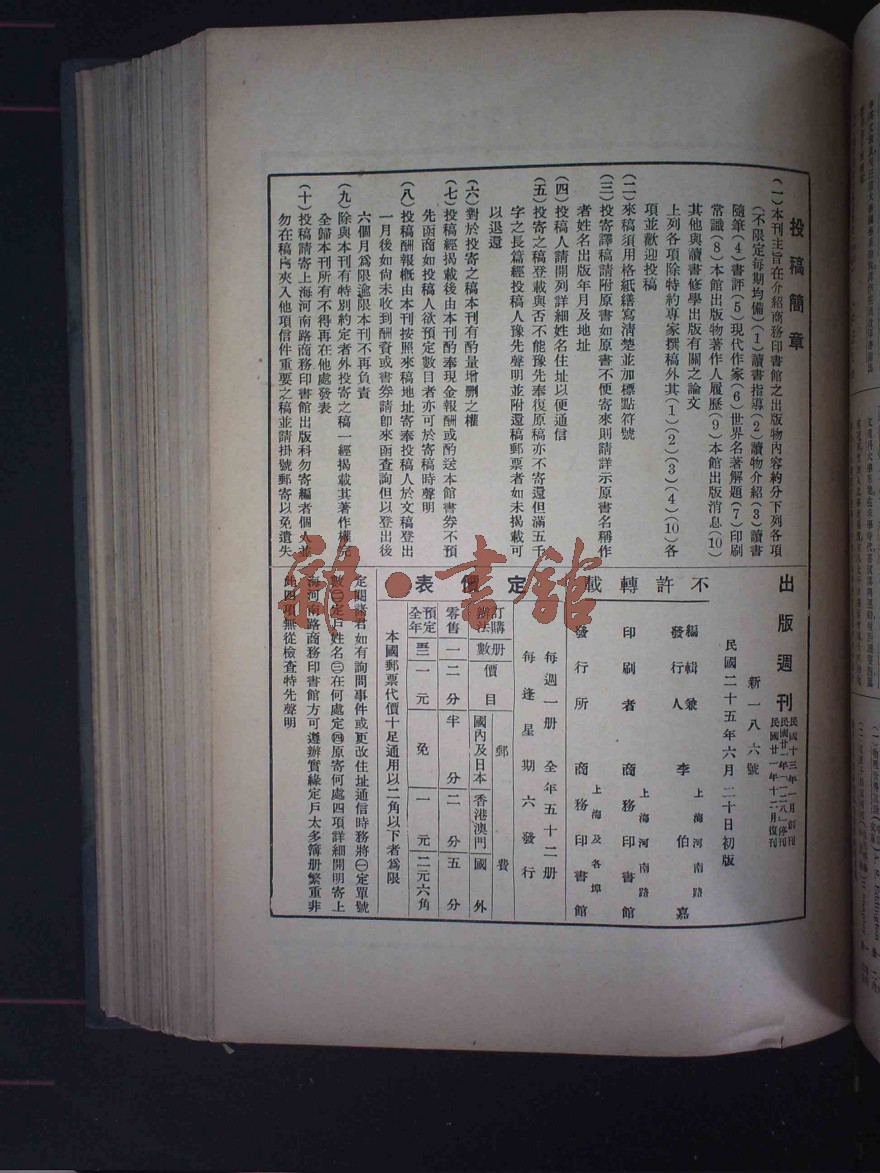 投稿簡章
(一)本刊主旨在介紹商務印書館之出版物內容約分下列各項
(不限定每期均備)(1)讀書指導(2)讀物介紹(3)讀書
隨筆(4)書評(5)現代作家(6)世界名著解題(7)印刷
常識(8)本館出版物著作人履歷(9)本館出版消息(10)
其他與讀書修學出版有關之論文
上列各項除特約專家撰稿外其(1)(2)(3)(4)(10)各
項並歡迎投稿
(二)來稿須用格紙繕寫清楚並加標點符號
(三)投寄譯稿請附原書如原書不便寄來則請詳示原書名稱作
者姓名出版年月及地址
(四)投稿人請開列詳細姓名住址以便通信
(五)投寄之稿登載與否不能豫先奉復原稿亦不寄還但滿五千
字之長篇經投稿人豫先聲明並附還稿郵票者如未揭載可
以退還
(六)對於投寄之稿本刊有酌量增刪之權
(七)投稿經揭載後由本刊酌奉現金報酬或酌送本館書券不預
先函商如投稿人欲預定數目者亦可於寄稿時聲明
(八)投稿酬報概由本刊按照來稿地址寄奉投稿人於文稿登出
一月後如尙未收到酬資或書券請卽來函查詢但以登出後
六個月爲限逾限本刊不再負責
(九)除與本刊有特別約定者外投寄之稿一經揭載其著作權完
全歸本刊所有不得再在他處發表
(十)投稿請寄上海河南路商務印書館出版科勿寄編者個人並
勿在稿內夾入他項信件重要之稿並請掛號郵寄以免遺失
出版週刊
民國十三年一月創刊
民國廿一年「一二八」停刊
民國廿一年十二月復刊
新一八六號
民國二十五年六月二十日初版
不許轉載
編輯兼發行人 李伯嘉
上海河南路
印刷者 商務印書館
上海河南路
發行所 商務印書館
上海及各埠
定價表
每週一册 全年五十二册
每逢星期六發行
訂購辦法 册數 價目 郵費
國內及日本 香港澳門 國外
零售 一 二分 半分 二分 五分
預定全年 五二 一元 免 一元 二元六角
本國郵票代價十足通用以二角以下者爲限
定閱諸君如有詢問事件或更改住址通信時務將㊀定單號
數㊁定戶姓名㊂在何處定㊃原寄何處四項詳細開明寄上
海河南路商務印書館方可遵辦實緣定戶太多簿册繁重非
此四項無從檢查特先聲明
書館